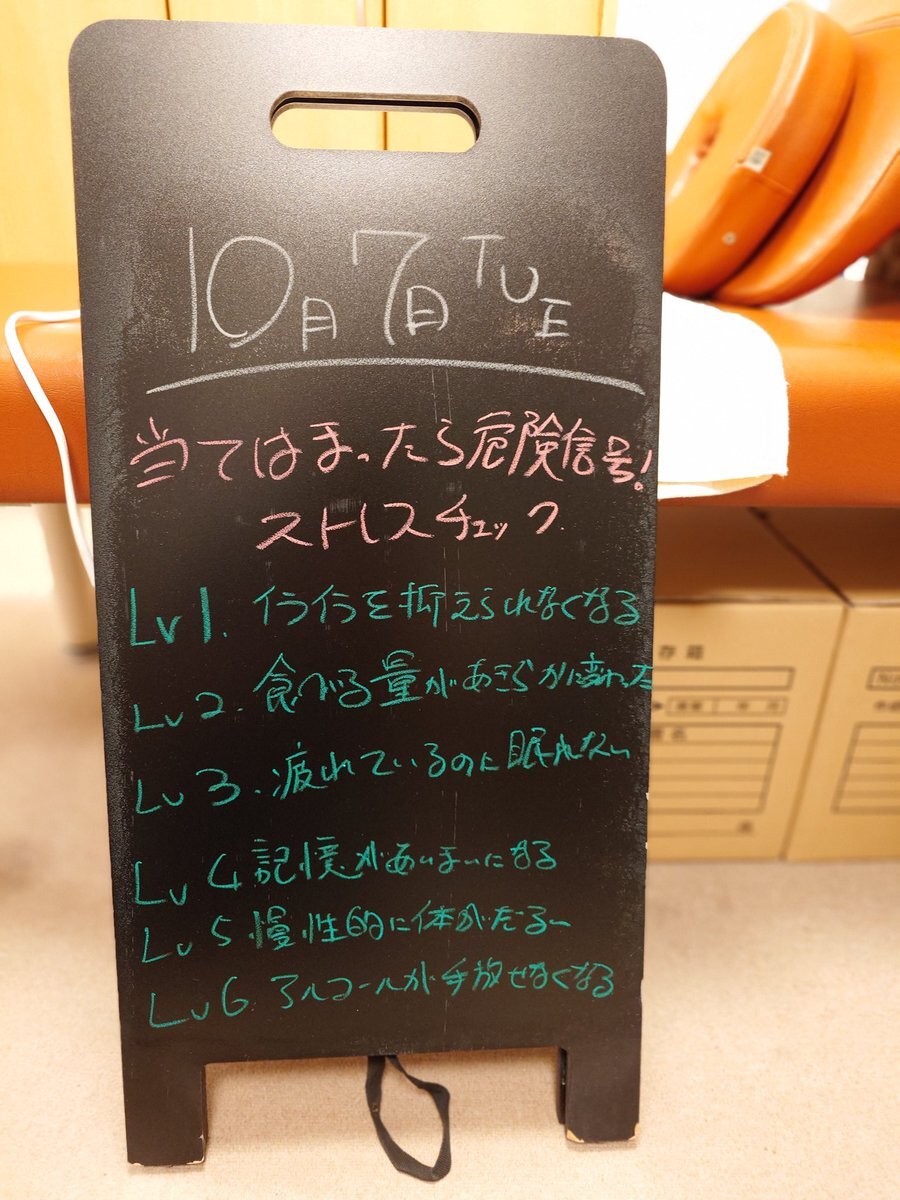 10月7日TUE
当てはまったら危険信号!
ストレスチェック.
Lv1. イライラを抑えられなくなる
Lv2. 食べる量があきらかに変わった
Lv3. 疲れているのに眠れない
Lv4 記憶があいまいになる
Lv5 慢性的に体がだるい
Lv6 アルコールが手放せなくなる
存箱